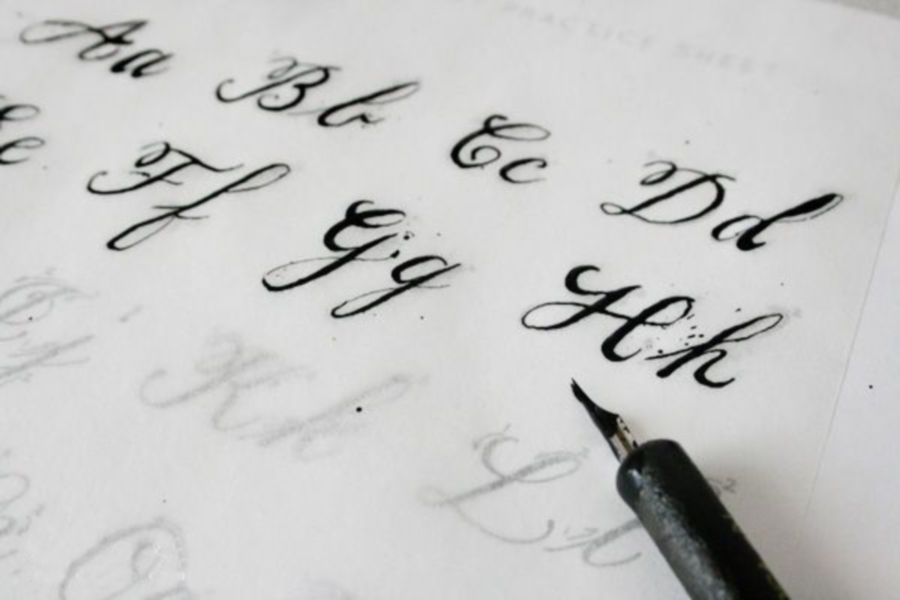 PRACTICE SHEET
Aa Bb Cc Dd
Ee Ff Gg Hh
Kk Ll